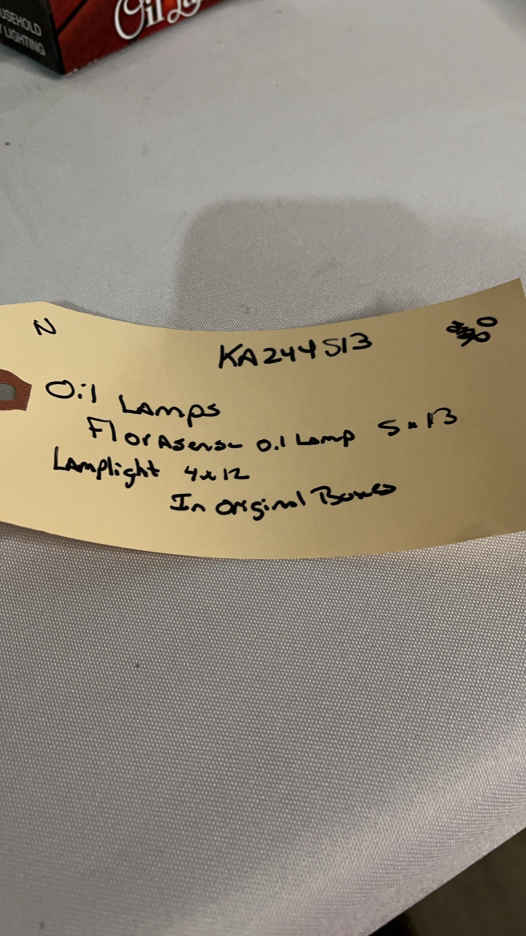 USEHOLD
LIGHTING
Oil
N
KA244513
Oil Lamps
FlorAsense Oil Lamp 5x13
Lamplight 4x12
In Original Boxes